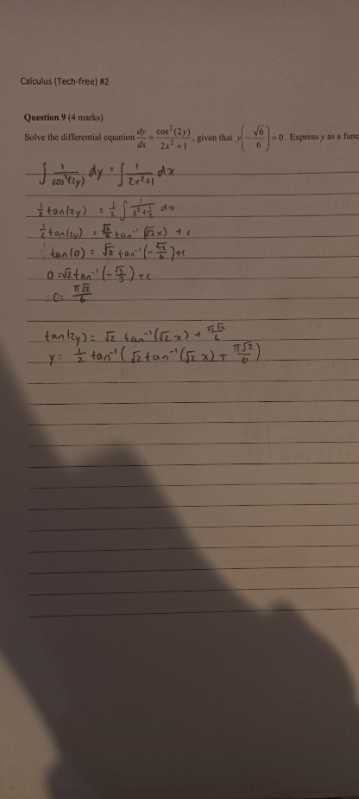 Calculus (Tech-free) #2
Question 9 (4 marks)
Solve the differential equation dy/dx = cos²(2y)/(2x² + 1), given that y(-√6/6) = 0. Express y as a func
∫ 1/cos²(2y) dy = ∫ 1/(2x²+1) dx
½ tan(2y) = ½ ∫ 1/(x²+½) dx
½ tan(2y) = √2/2 tan⁻¹(√2x) + c
tan(0) = √2 tan⁻¹(-√3/3)+c
0 = √2 tan⁻¹(-√3/3) + c
C= π√2/6
tan(2y) = √2 tan⁻¹(√2 x) + π√2/6
y = ½ tan⁻¹(√2 tan⁻¹(√2 x) + π√2/6)